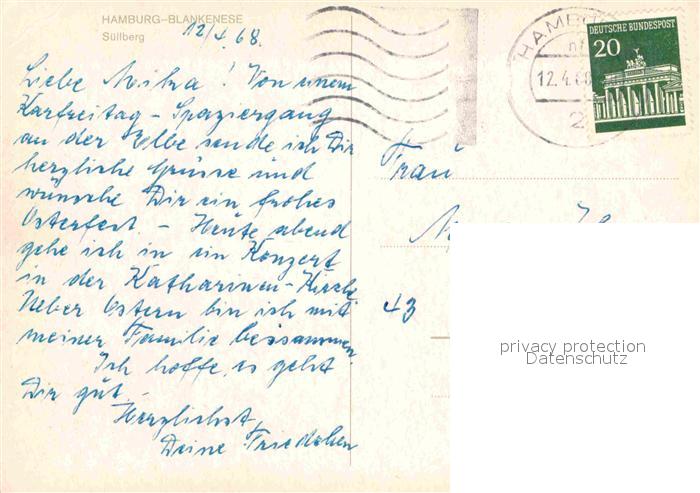 HAMBURG-BLANKENESE
Süllberg
12/4.68.
Liebe Meika! Von einem
Karfreitag-Spaziergang
an der Elbe sende ich Dir
herzliche Grüsse und
wünsche Dir ein frohes
Osterfest. - Heute abend
gehe ich in ein Konzert
in der Katharinen-Kirche
Ueber Ostern bin ich mit
meiner Familie beisammen.
Ich hoffe, es geht
Dir gut. -
Herzlichst
Deine Friedchen
HAMBU
12.4.68
2
DEUTSCHE BUNDESPOST
20
Frau
43
privacy protection
Datenschutz